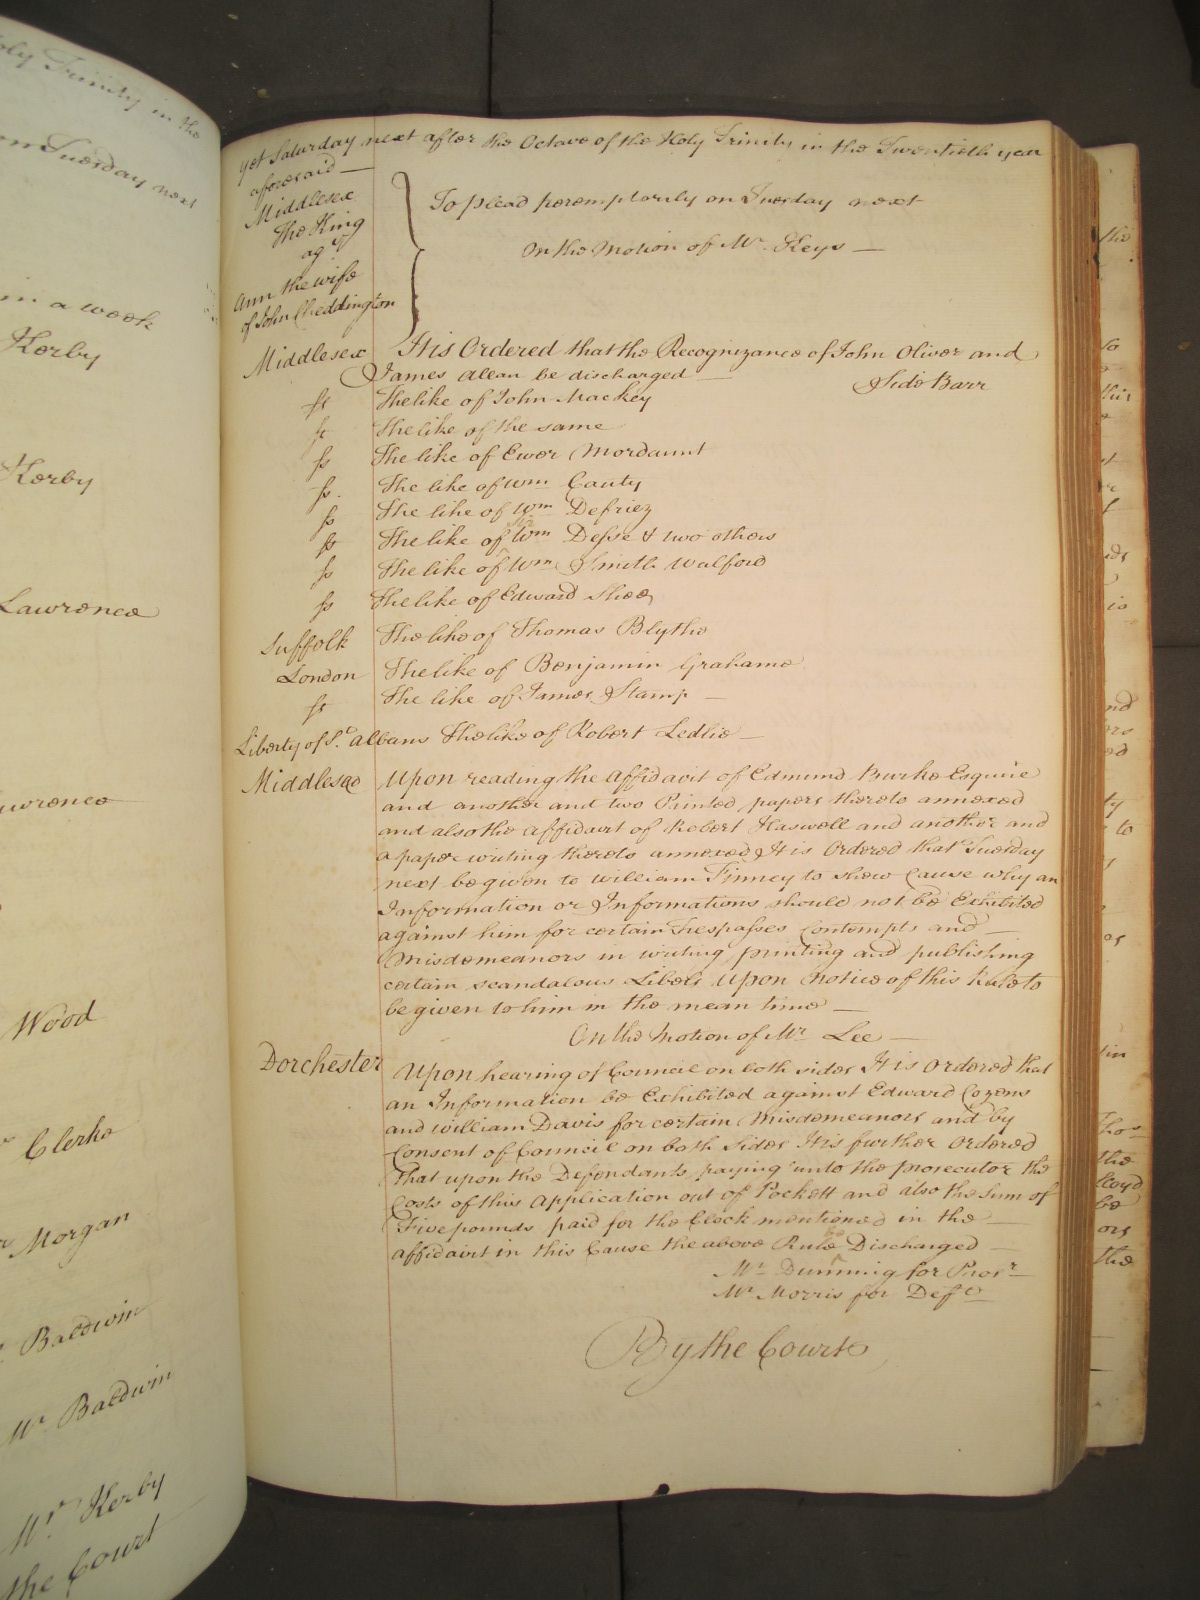 Holy Trinity in the
on Tuesday next
in a week
Kerby
Kerby
Lawrence
Lawrence
Wood
Clerke
Morgan
Baldwin
Mr. Baldwin
Mr. Kerby
the Court
Yet Saturday next after the Octave of the Holy Trinity in the Twentieth year
aforesaid —
Middlesex
The King
agt
Ann the wife
of John Cheddington
To plead peremptorily on Tuesday next
On the Motion of Mr. Keys —
Middlesex It is Ordered that the Recognizance of John Oliver and
James Allan be discharged — Side Barr
ss The like of John Mackey
ss The like of the same
ss The like of Ewer Mordaunt
ss. The like of Wm Cauty
ss The like of Wm Defriez
ss The like of Wm Desse & two others
ss The like of Wm Smith Walford
ss The like of Edward Shee
Suffolk The like of Thomas Blythe
London The like of Benjamin Grahame
ss The like of James Stamp —
Liberty of St. Albans The like of Robert Ledlie —
Middlesex Upon reading the Affidavit of Edmund Burke Esquire
and another and two Printed papers thereto annexed
and also the Affidavit of Robert Haswell and another and
a paper writing thereto annexed It is Ordered that Tuesday
next be given to William Finney to shew Cause why an
Information or Informations should not be Exhibited
against him for certain Trespasses Contempts and —
Misdemeanors in writing printing and publishing
certain scandalous Libels Upon Notice of this Rule to
be given to him in the mean time —
On the Motion of Mr. Lee —
Dorchester Upon hearing of Council on both sides It is Ordered that
an Information be Exhibited against Edward Cozens
and William Davis for certain Misdemeanors and by
Consent of Council on both Sides It is further Ordered
That upon the Defendants paying unto the prosecutor the
Costs of this Application out of Pockett and also the Sum of
Five pounds paid for the Clock mentioned in the —
Affidavit in this Cause the above Rule be Discharged —
Mr. Dunning for Prosr. —
Mr. Morris for Defts
By the Court